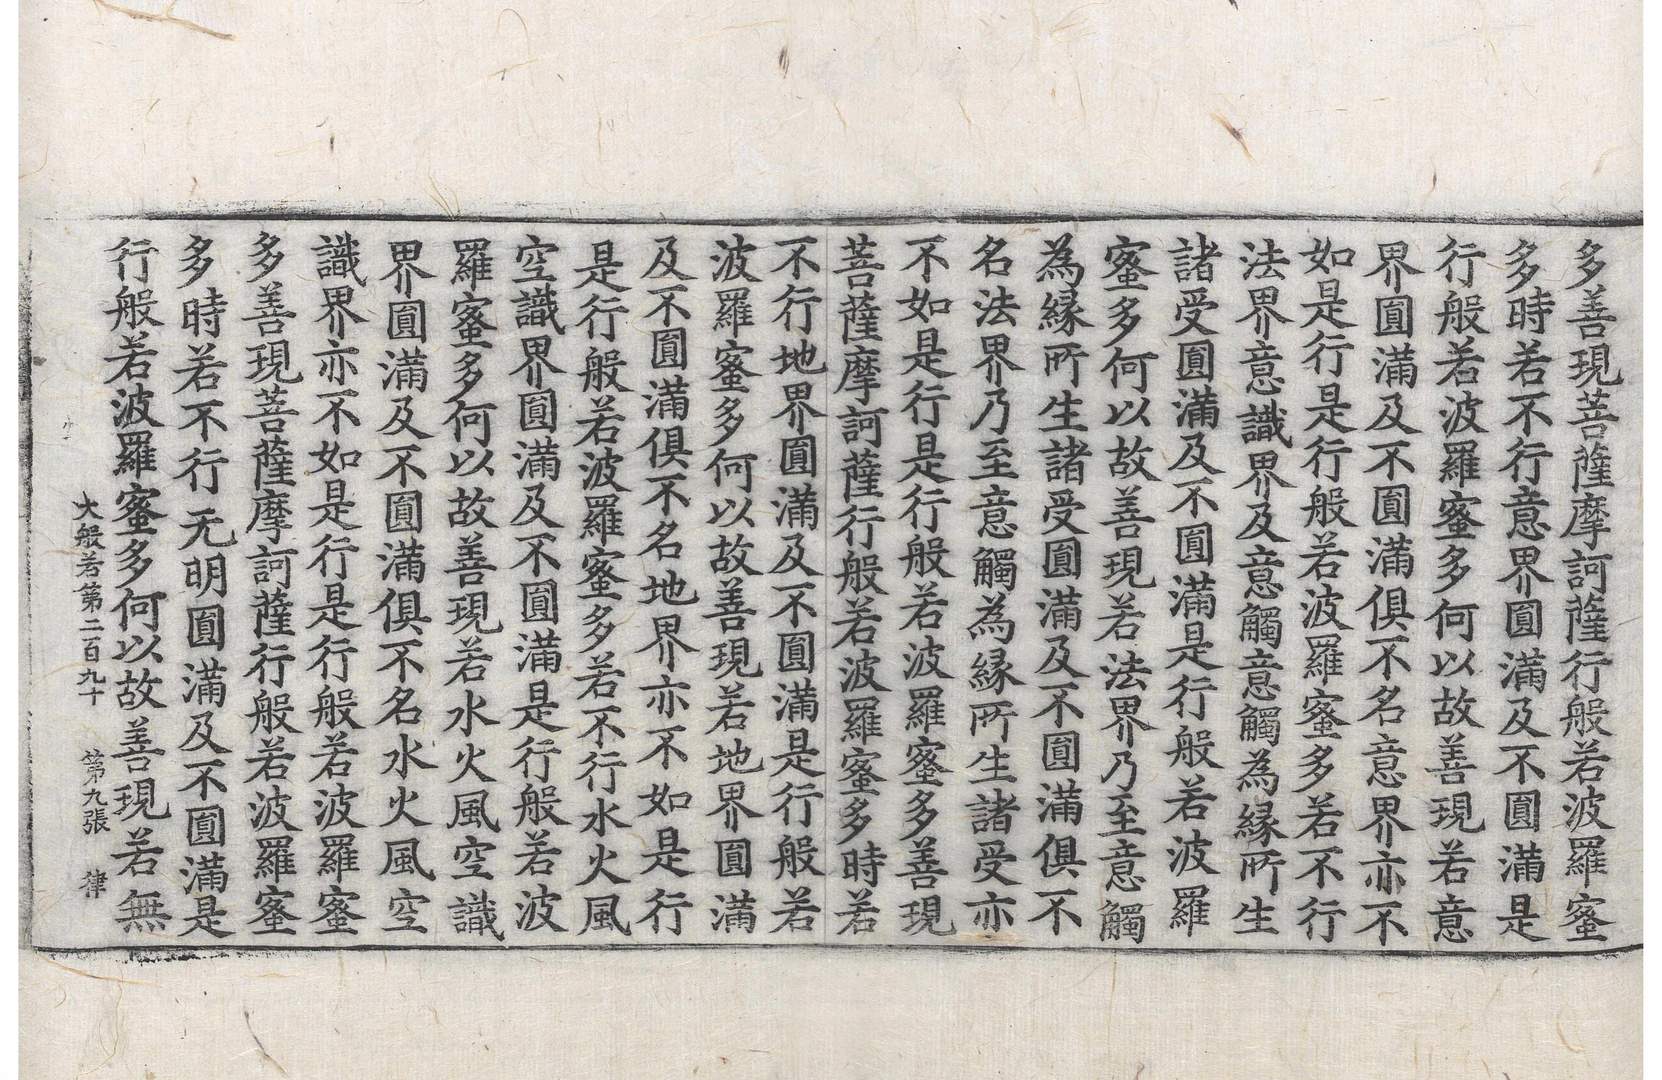 多善現菩薩摩訶薩行般若波羅蜜
多時若不行意界圓滿及不圓滿是
行般若波羅蜜多何以故善現若意
界圓滿及不圓滿俱不名意界亦不
如是行是行般若波羅蜜多若不行
法界意識界及意觸意觸為緣所生
諸受圓滿及不圓滿是行般若波羅
蜜多何以故善現若法界乃至意觸
為緣所生諸受圓滿及不圓滿俱不
名法界乃至意觸為緣所生諸受亦
不如是行是行般若波羅蜜多善現
菩薩摩訶薩行般若波羅蜜多時若
不行地界圓滿及不圓滿是行般若
波羅蜜多何以故善現若地界圓滿
及不圓滿俱不名地界亦不如是行
是行般若波羅蜜多若不行水火風
空識界圓滿及不圓滿是行般若波
羅蜜多何以故善現若水火風空識
界圓滿及不圓滿俱不名水火風空
識界亦不如是行是行般若波羅蜜
多善現菩薩摩訶薩行般若波羅蜜
多時若不行无明圓滿及不圓滿是
行般若波羅蜜多何以故善現若無
大般若第二百九十 第九張 律